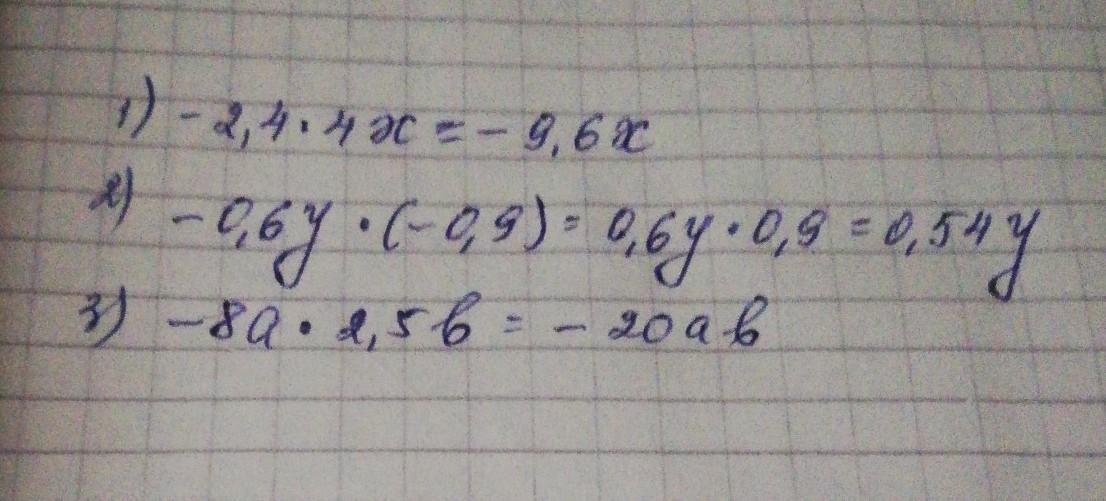 1) -2,4 · 4x = -9,6x
2) -0,6y · (-0,9) = 0,6y · 0,9 = 0,54y
3) -8a · 2,5b = -20ab